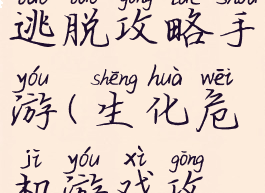 逃脱攻略手
yóu shēng huà wēi
游(生化危
jī yóu xì gōng
机游戏攻